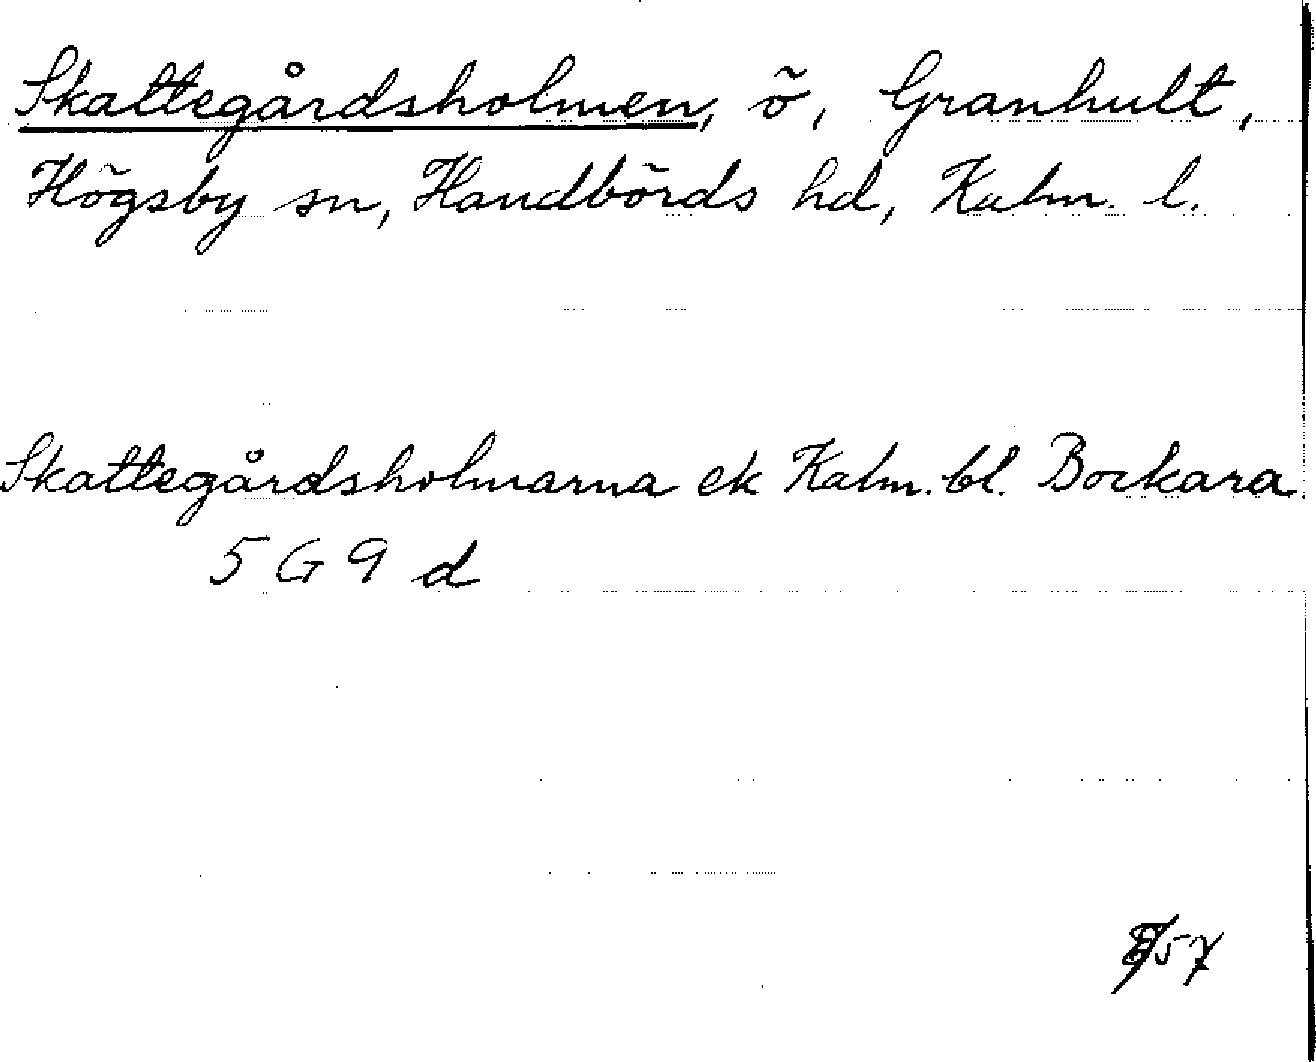 Skattegårdsholmen, ö, Granhult,
Högsby sn, Handbörds hd, Kalm. l.
Skattegårdsholmarna ek Kalm. bl. Bockara
5 G 9 d
57